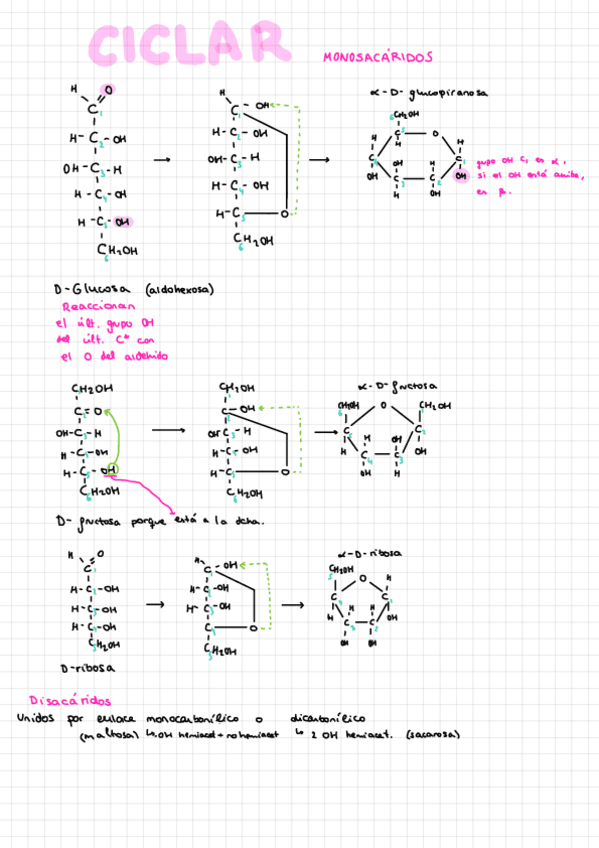 CICLAR
MONOSACÁRIDOS
H O
C 1
H-C 2-OH
OH-C 3-H
H-C 4-OH
H-C 5-OH
CH2OH 6
H
C-OH 1
H-C-OH 2
OH-C-H 3
H-C-OH 4
H-C 5 O
CH2OH 6
α-D-glucopiranosa
CH2OH 6
C 5 O
H H H
C 4 C 1
OH OH H OH
C 3 C 2
H OH
grupo OH C1 en α,
si el OH está arriba,
en β.
D-Glucosa (aldohexosa)
Reaccionan
el últ. grupo OH
del últ. C* con
el O del aldehído
CH2OH
C=O
OH-C-H
H-C-OH
H-C-OH
CH2OH
CH2OH
C-OH
OH C-H
H-C-OH
H-C O
CH2OH
α-D-fructosa
CH2OH O CH2OH
C 5 C 2
H H OH OH
C 4 C 3
OH H
D-fructosa porque está a la dcha.
H O
C 1
H-C-OH
H-C-OH
H-C-OH
CH2OH
H
C-OH
H-C-OH
H-C-OH
C O
CH2OH
α-D-ribosa
CH2OH
O H
C C
H H H OH
C C
OH OH
D-ribosa
Disacáridos
Unidos por enlace monocarbonílico o dicarbonílico
(maltosa) ↳ OH hemiacet + no hemiacet ↳ 2 OH hemiacet. (sacarosa)